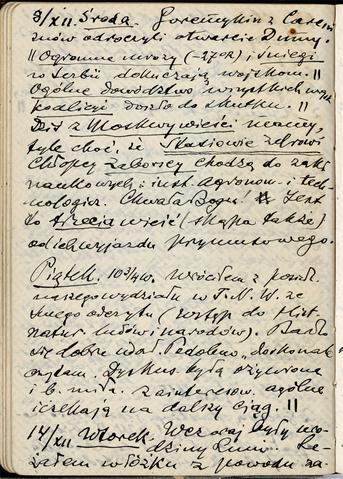 8/XII. Środa. Goremykin z Carem
znów odroczyli otwarcie Dumy.
|| Ogromne mrozy (-27°R) i śniegi
w Serbii dokuczają wojskom. ||
Ogólne dowództwo wszystkich wojsk
koalicji doszło do skutku. ||
Dziś z Moskwy wieści mamy,
tyle choć, że Stasiowie zdrowi
Chłopcy zaborscy chodzą do zakł.
naukowych: inst. agronom. i tech-
nologicz. Chwała Bogu! Jest
to trzecia wieść (skąpa także)
od ich wyjazdu przymusowego.
Piątek. 10¾ w. Wróciłem z posiedz.
naszego wydziału w T. N. W. ze
swego odczytu (Wstęp do Hist.
natur. ludów i narodów). Bardzo
się dobrze udał. "doskonale"
czytam. Dyskus. była ożywiona
i b. miła. Zainteresow. ogólne
i czekają na dalszy ciąg. ||
14/XII. Wtorek. Wczoraj były uro-
dziny Le-
żałem w łóżku z powodu za-